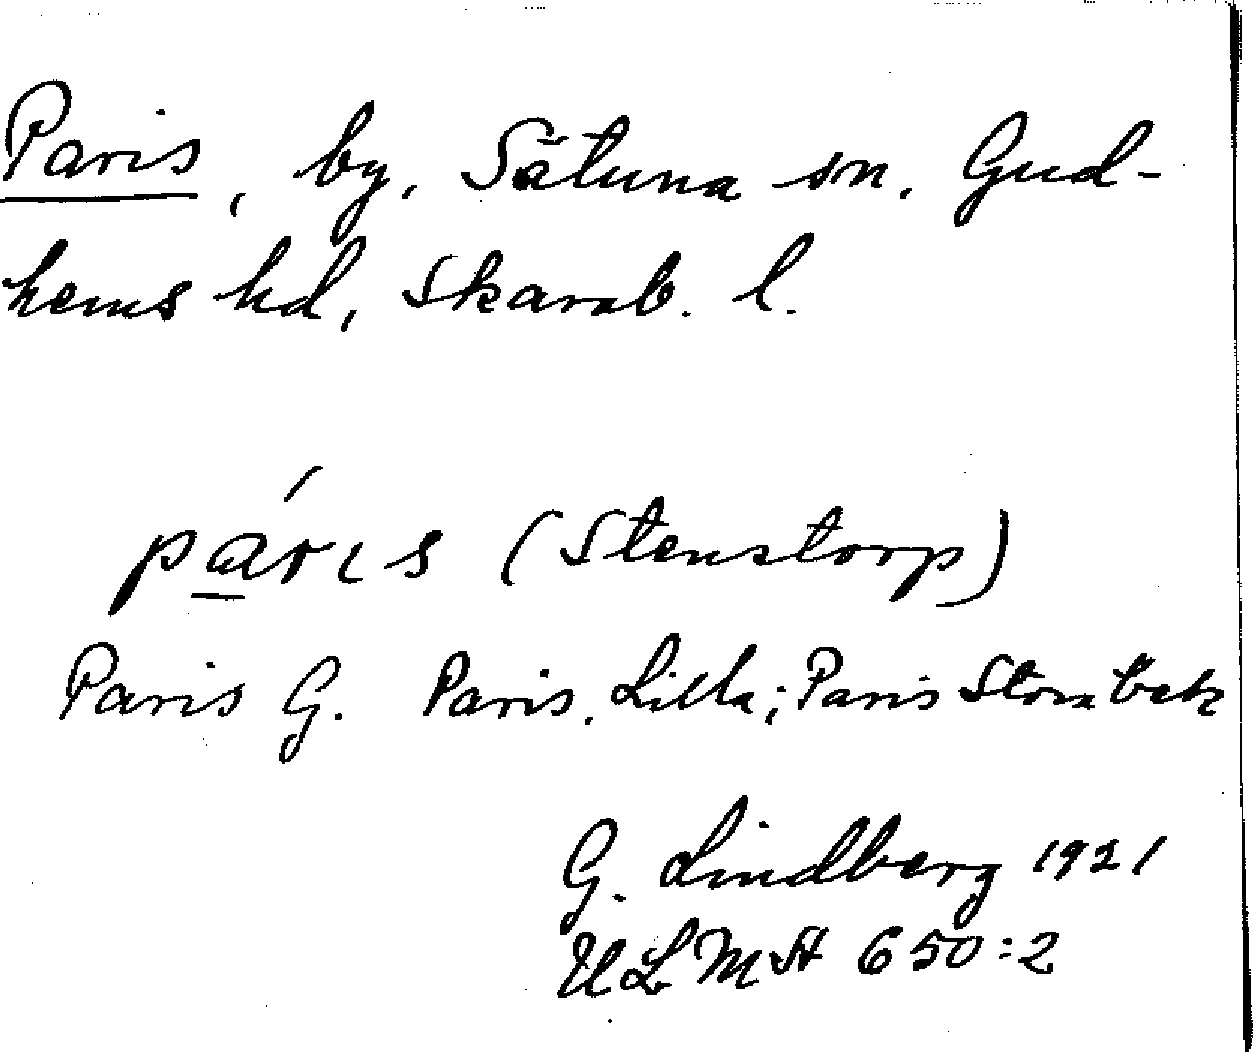 Paris, by, Sätuna sn. Gud-
hems hd, Skarab. l.
párıs (Stenstorp)
Paris G. Paris, Lilla; Paris Stora
G. Lindberg 1921
ULMA 650:2